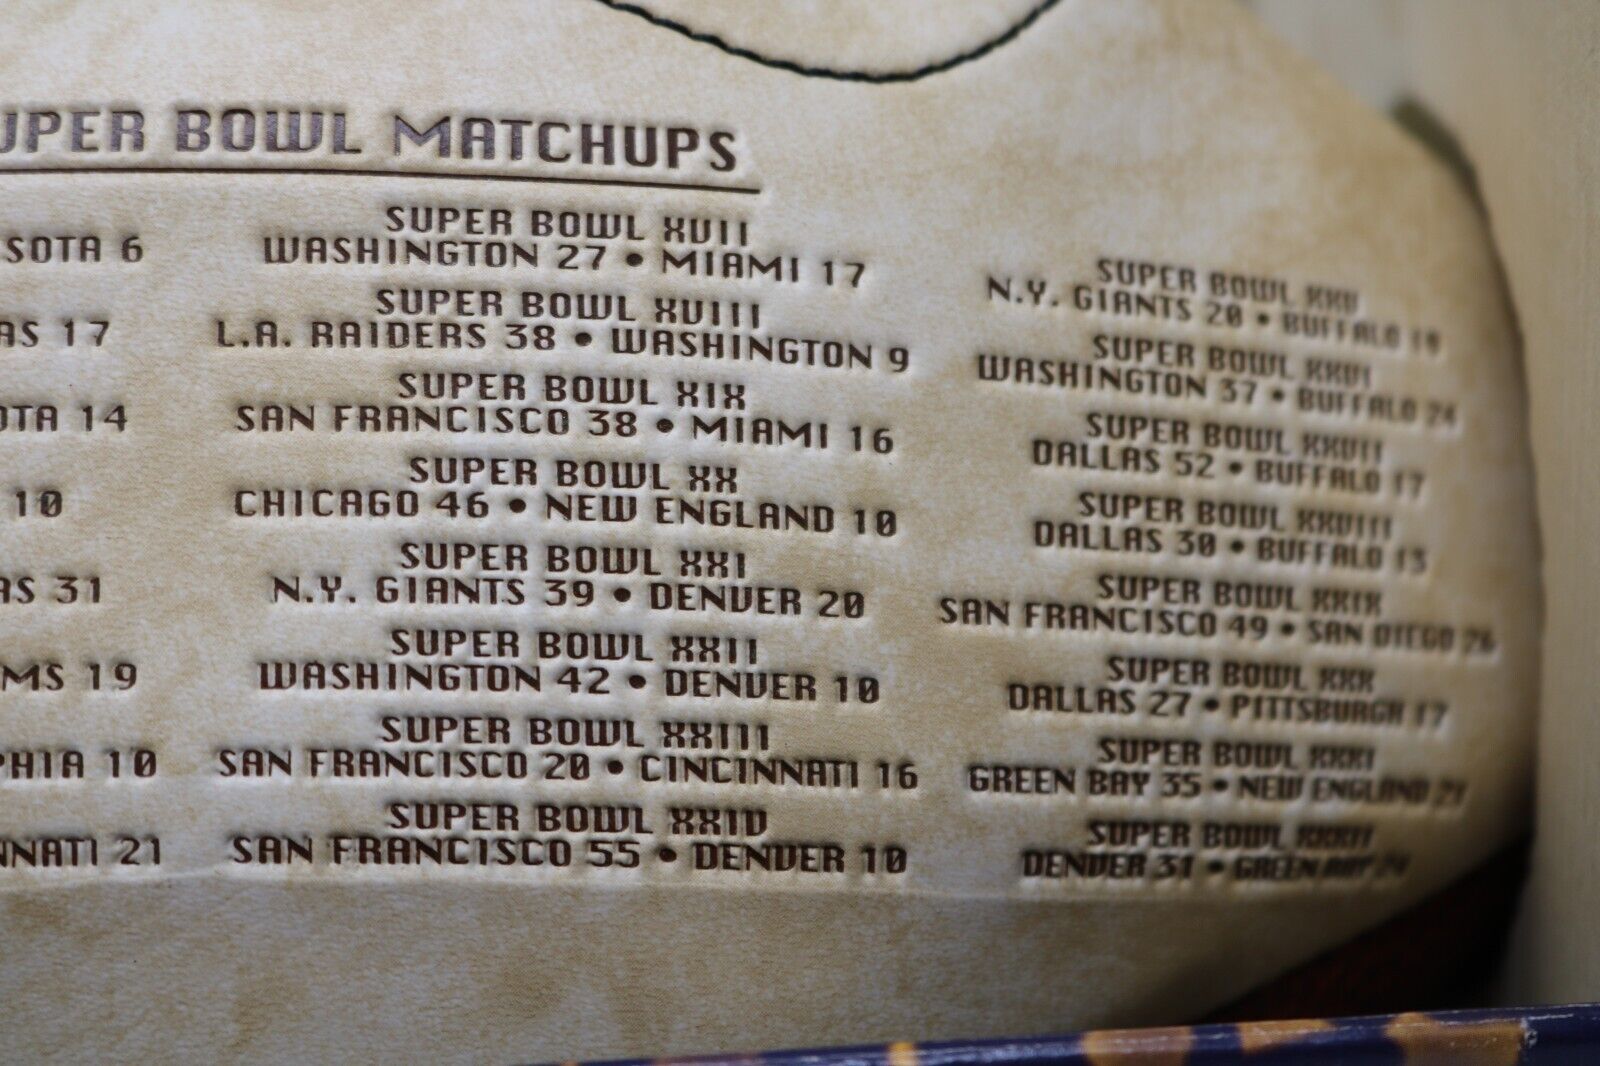 UPER BOWL MATCHUPS
SOTA 6
AS 17
OTA 14
10
AS 31
MS 19
PHIA 10
NNATI 21
SUPER BOWL XVII
WASHINGTON 27 • MIAMI 17
SUPER BOWL XVIII
L.A. RAIDERS 38 • WASHINGTON 9
SUPER BOWL XIX
SAN FRANCISCO 38 • MIAMI 16
SUPER BOWL XX
CHICAGO 46 • NEW ENGLAND 10
SUPER BOWL XXI
N.Y. GIANTS 39 • DENVER 20
SUPER BOWL XXII
WASHINGTON 42 • DENVER 10
SUPER BOWL XXIII
SAN FRANCISCO 20 • CINCINNATI 16
SUPER BOWL XXIV
SAN FRANCISCO 55 • DENVER 10
SUPER BOWL XXV
N.Y. GIANTS 20 • BUFFALO 19
SUPER BOWL XXVI
WASHINGTON 37 • BUFFALO 24
SUPER BOWL XXVII
DALLAS 52 • BUFFALO 17
SUPER BOWL XXVIII
DALLAS 30 • BUFFALO 13
SUPER BOWL XXIX
SAN FRANCISCO 49 • SAN DIEGO 26
SUPER BOWL XXX
DALLAS 27 • PITTSBURGH 17
SUPER BOWL XXXI
GREEN BAY 35 • NEW ENGLAND 21
SUPER BOWL XXXII
DENVER 31 • GREEN BAY 24